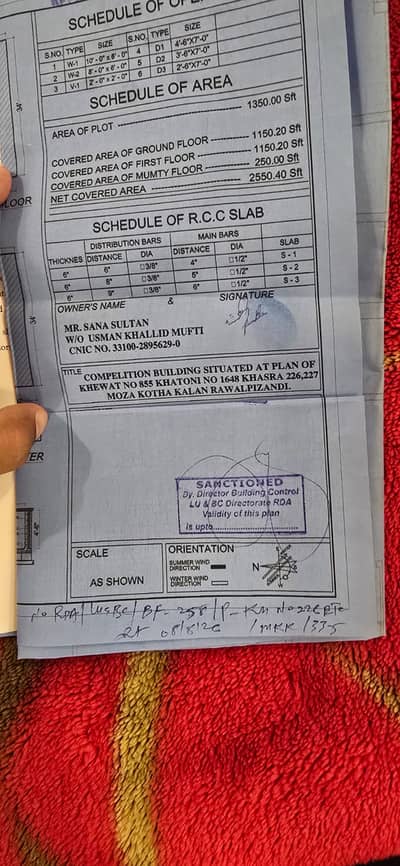 SCHEDULE OF OPE
S.NO. TYPE SIZE S.NO. TYPE SIZE
1 W-1 10'-0"x6'-0" 4 D1 4'-6"X7'-0"
2 W-2 8'-0"x6'-0" 5 D2 3'-6"X7'-0"
3 V-1 2'-0"x2'-0" 6 D3 2'-6"X7'-0"
SCHEDULE OF AREA
AREA OF PLOT 1350.00 Sft
COVERED AREA OF GROUND FLOOR 1150.20 Sft
COVERED AREA OF FIRST FLOOR 1150.20 Sft
COVERED AREA OF MUMTY FLOOR 250.00 Sft
NET COVERED AREA 2550.40 Sft
SCHEDULE OF R.C.C SLAB
DISTRIBUTION BARS MAIN BARS
THICKNES DISTANCE DIA DISTANCE DIA SLAB
6" 6" □3/8" 4" □1/2" S - 1
6" 8" □3/8" 6" □1/2" S - 2
6" 9" □3/8" 6" □1/2" S - 3
OWNER'S NAME & SIGNATURE
MR. SANA SULTAN
W/O USMAN KHALLID MUFTI
CNIC NO. 33100-2895629-0
TITLE COMPELITION BUILDING SITUATED AT PLAN OF
KHEWAT NO 855 KHATONI NO 1648 KHASRA 226,227
MOZA KOTHA KALAN RAWALPIZANDI.
SANCTIONED
Dy. Director Building Control
LU & BC Directorate RDA
Validity of this plan
is upto
SCALE
AS SHOWN
ORIENTATION
SUMMER WIND
DIRECTION
WINTER WIND
DIRECTION
N
LOOR
34'
34'
ER